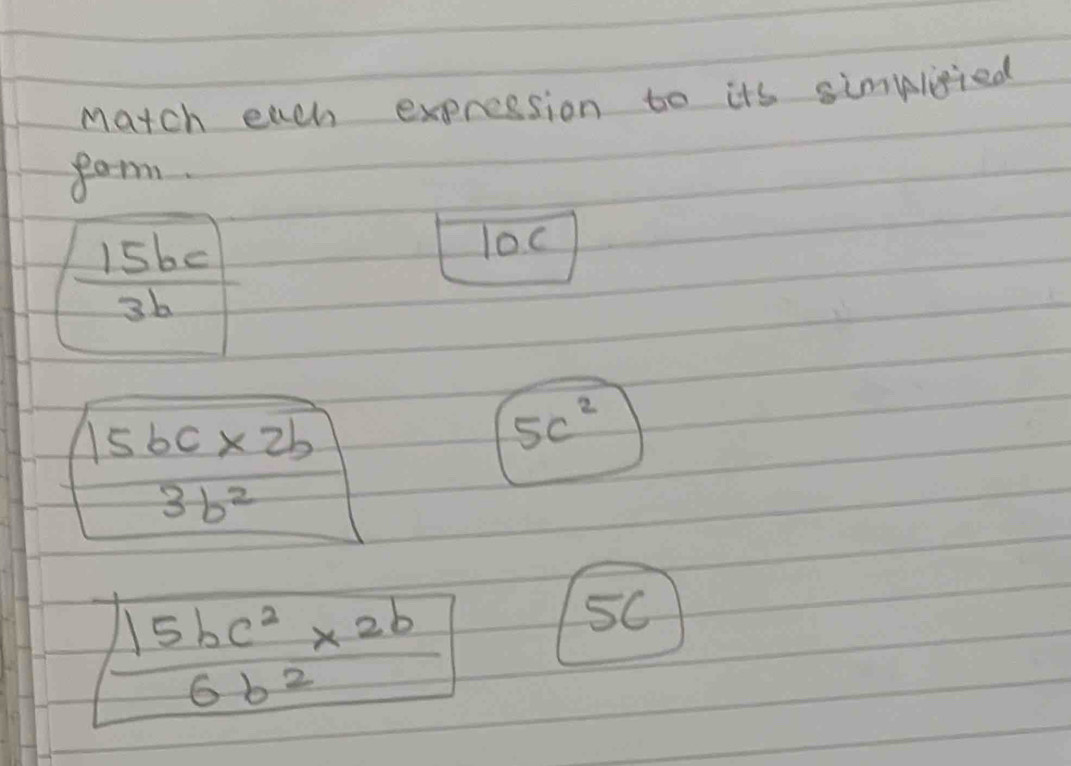 Match each expression to its simplified
form.
15bc
3b
10c
15bc × 2b
3b²
5c²
15bc² × 2b
6b²
5c